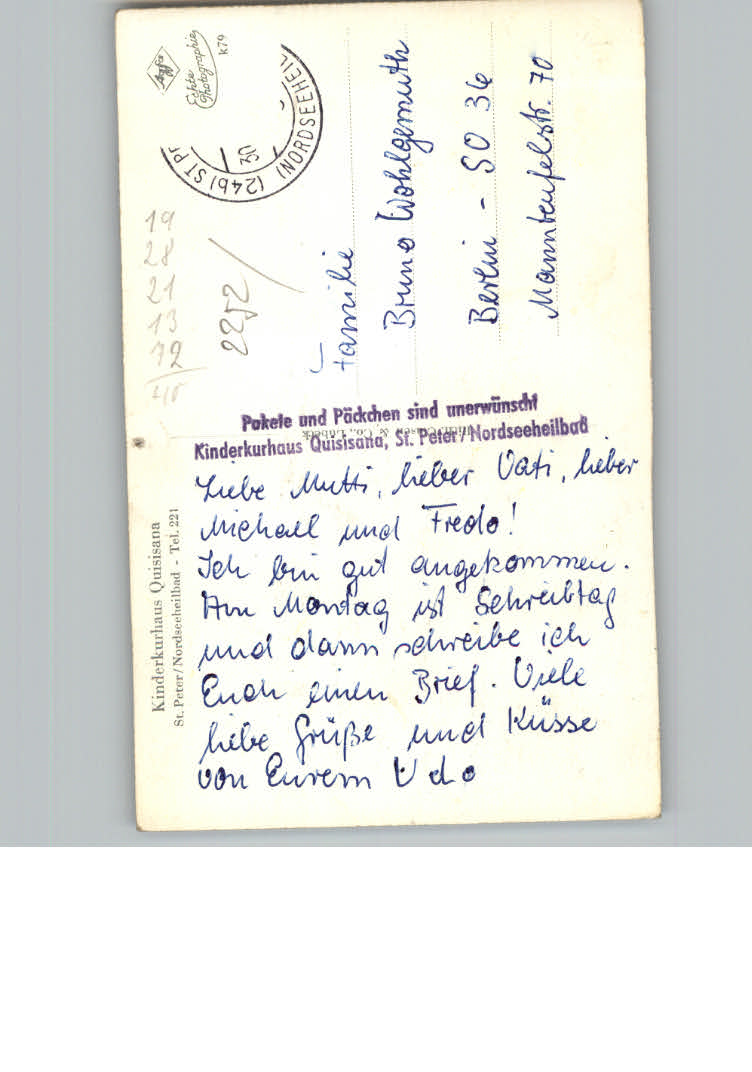 Agfa
Echte
Photographie
k79
(24b) ST. P
30
(NORDSEEHEIL
19
28
21
13
72
2252
Familie
Bruno Wohlgemuth
Berlin - SO 36
Mannteufelstr. 70
Pakete und Päckchen sind unerwünscht
Kinderkurhaus Quisisana, St. Peter/Nordseeheilbad
Kinderkurhaus Quisisana
St. Peter/Nordseeheilbad - Tel. 221
Liebe Mutti, lieber Vati, lieber
Michael und Fredo!
Ich bin gut angekommen.
Am Montag ist Schreibtag
und dann schreibe ich
Euch einen Brief. Viele
liebe Grüße und Küsse
von Eurem Udo